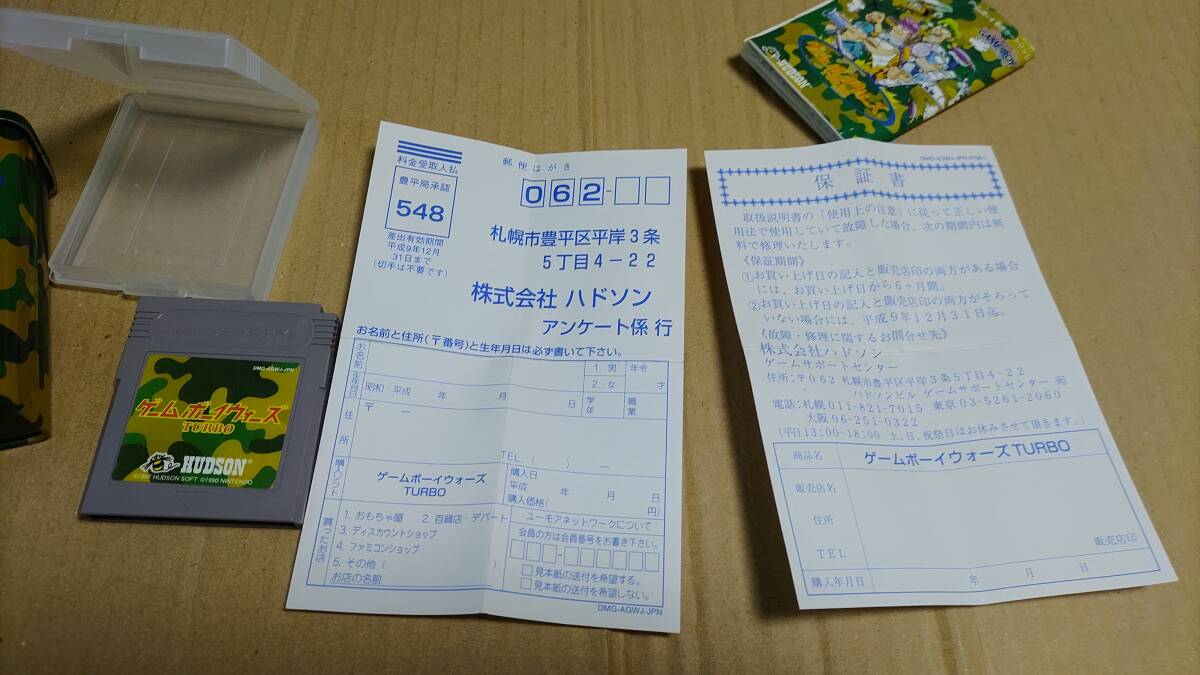 DMG-AGWJ-JPN
ゲームボーイウォーズ
TURBO
HUDSON®
©1997 HUDSON SOFT ©1990 NINTENDO
料金受取人払
豊平局承認
548
差出有効期間
平成9年12月
31日まで
(切手は不要です)
郵便はがき
062-
札幌市豊平区平岸3条
5丁目4-22
株式会社 ハドソン
アンケート係 行
お名前と住所(〒番号)と生年月日は必ず書いて下さい。
お名前
1. 男
2. 女
年令
才
生年月日
昭和・平成 年 月 日
学年
職業
住所
〒 -
TEL. ( ) -
購入ソフト
ゲームボーイウォーズ
TURBO
購入日
平成 年 月 日
購入価格( 円)
買ったお店
1. おもちゃ屋 2. 百貨店・デパート
3. ディスカウントショップ
4. ファミコンショップ
5. その他 ( )
お店の名前
ユーモアネットワークについて
会員の方は会員番号をお書き下さい。
□見本紙の送付を希望する。
□見本紙の送付を希望しない。
DMG-AGWJ-JPN
HUDSON
ゲームボーイウォーズ
TURBO
GAME BOY
保証書
取扱説明書の「使用上の注意」に従って正しい使
用法で使用していて故障した場合、次の期間内は無
料で修理いたします。
《保証期間》
①お買い上げ日の記入と販売店印の両方がある場合
には、お買い上げ日から6ヶ月間。
②お買い上げ日の記入と販売店印の両方がそろって
いない場合には、平成9年12月31日迄。
《故障・修理に関するお問合せ先》
株式会社ハドソン
ゲームサポートセンター
住所:〒062 札幌市豊平区平岸3条5丁目4-22
ハドソンビル ゲームサポートセンター 宛
電話:札幌011-821-7015 東京03-5261-2060
大阪06-251-0322
(平日13:00~18:00 土、日、祝祭日はお休みさせて頂きます。)
商品名 ゲームボーイウォーズTURBO
販売店名
住所
TEL
販売店印
購入年月日 年 月 日